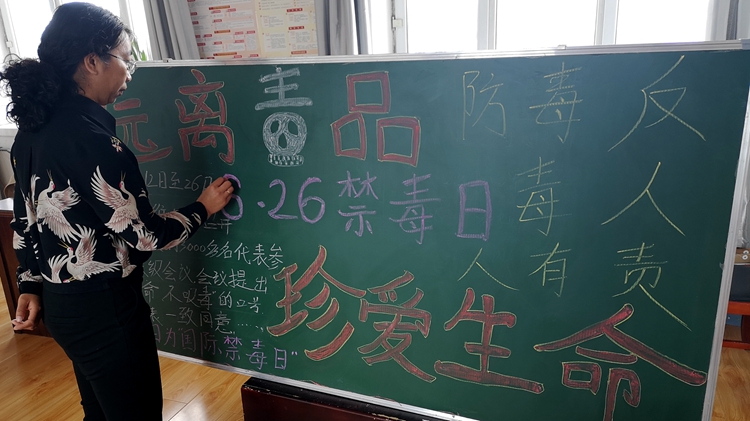 远离毒品
防毒反
毒人
人有责
6·26禁毒日
12日至26日
3000多名代表参
级会议会议提出
命不吸毒"的口号
一致同意……
为国际禁毒日"
珍爱生命